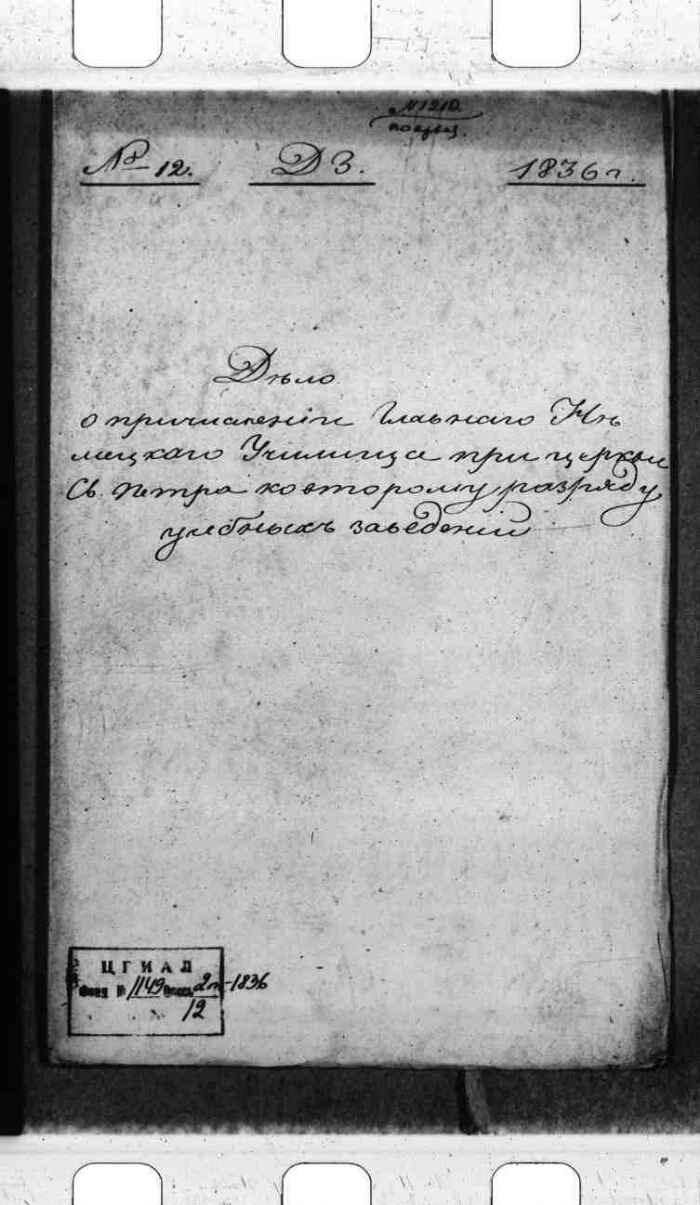 № 1210
№ 12. Д 3. 1836 г.
Дѣло
о причисленіи Главнаго Нѣ
мецкаго Училища при церкви
Св. Петра ко второму разряду
учебныхъ заведеній
ЦГИАЛ
Фонд № 1149 Опись 2 т-1836
12